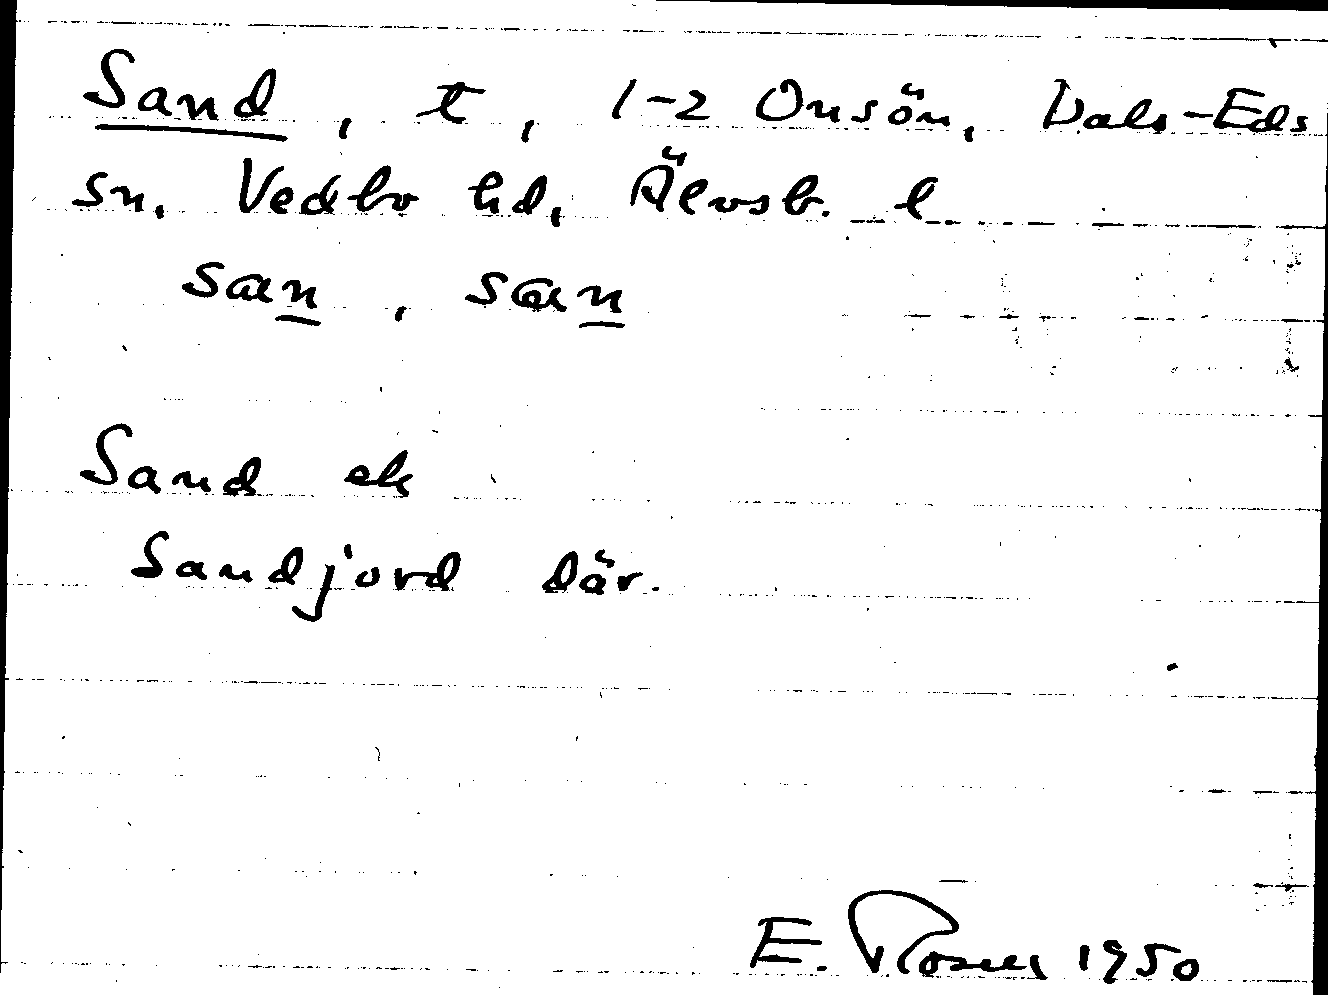 Sand, t, 1-2 Onsön, Dals-Eds
sn. Vedbo hd, Älvsb. l
san, san
Sand ek
Sandjord där.
E. Rosell 1950